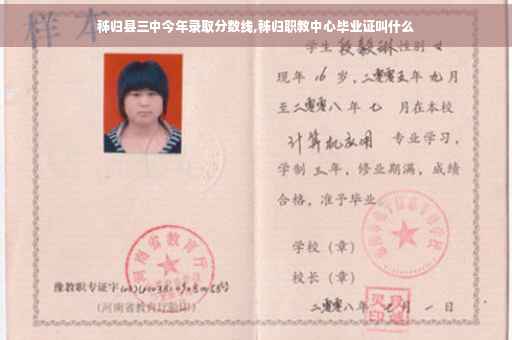 秭归县三中今年录取分数线,秭归职教中心毕业证叫什么
样本
学生 段毅琳 性别 女
现年 16 岁,二零零五年 九月
至二零零八年 七 月在本校
计算机应用 专业学习,
学制 三 年,修业期满,成绩
合格,准予毕业
学校(章)
校长(章)
二零零八年 月 一 日
河南省教育厅
豫教职专证字
(河南省教育厅验印)